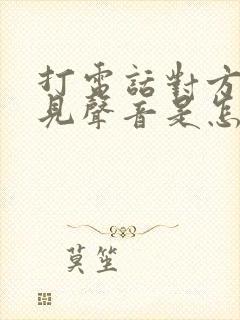 打電話對方
見聲音是怎
莫笙